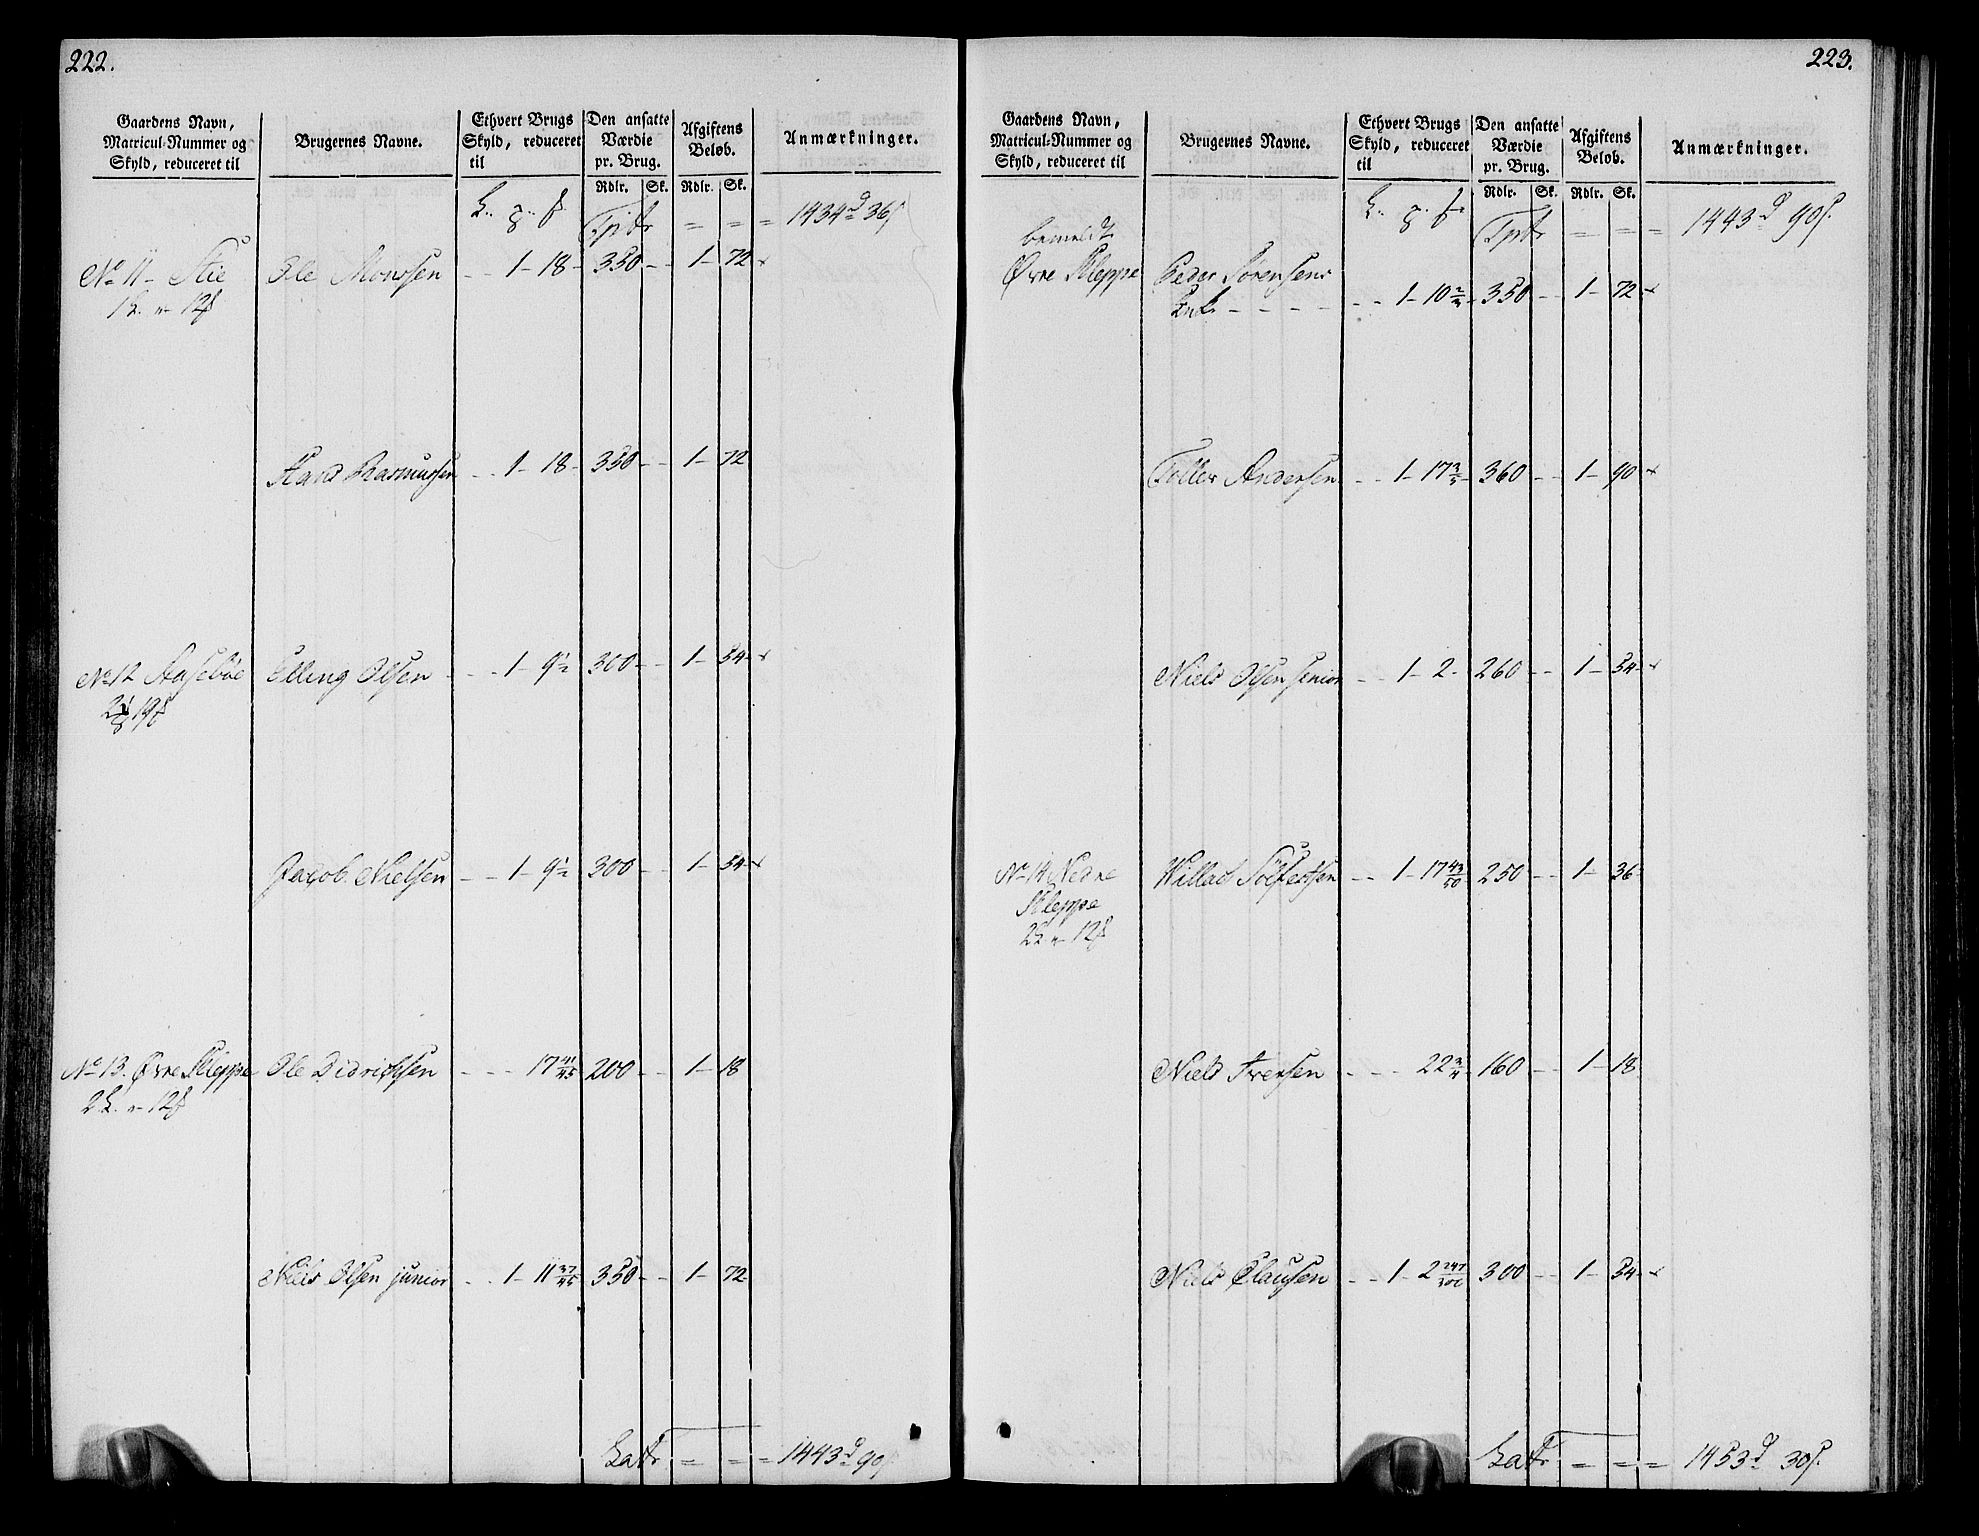 222.
Gaardens Navn, Matricul-Nummer og Skyld, reduceret til | Brugernes Navne. | Ethvert Brugs Skyld, reduceret til | Den ansatte Værdie pr. Brug. Rdlr. Sk. | Afgiftens Beløb. Rdlr. Sk. | Anmærkninger.
1434 d 36 s
No 11 Stie Ole Monssen 1 - 18 - 350 - - 1 - 72
12
Hans Rasmussen - - 1 - 18 - 350 - - 1 - 72
No 12 Aasebøe Elling Olsen - - 1 - 9½ 300 - - 1 - 54
Jacob Nielsen - - 1 - 9½ 300 - - 1 - 54
No 13. Øvre Kleppe Ole Didrichsen - - - 17 41/45 200 - - 1 - 18
Niels Olsen junior - - 1 - 11 37/45 350 - - 1 - 72
Latr = = = 1443 d 90 s
223.
Gaardens Navn, Matricul-Nummer og Skyld, reduceret til | Brugernes Navne. | Ethvert Brugs Skyld, reduceret til | Den ansatte Værdie pr. Brug. Rdlr. Sk. | Afgiftens Beløb. Rdlr. Sk. | Anmærkninger.
1443 d 90 s.
bemeldt
Øvre Kleppe Peder Sørensens
Enke - - - - - - 1 - 10 350 - - 1 - 72
Toller Andersen - - 1 - 17 360 - - 1 - 90
Niels Olsen senior - - 1 - 2 - 260 - - 1 - 54
No 14 Nedre Willas Sölfestsen - - 1 - 17 43/50 250 - - 1 - 36
Kleppe
Niels Iversen - - - 22 3/4 160 - - 1 - 18
Niels Clausen - - 1 - 2 300 - - 1 - 54
Latr = = = 1453 d 30 s.